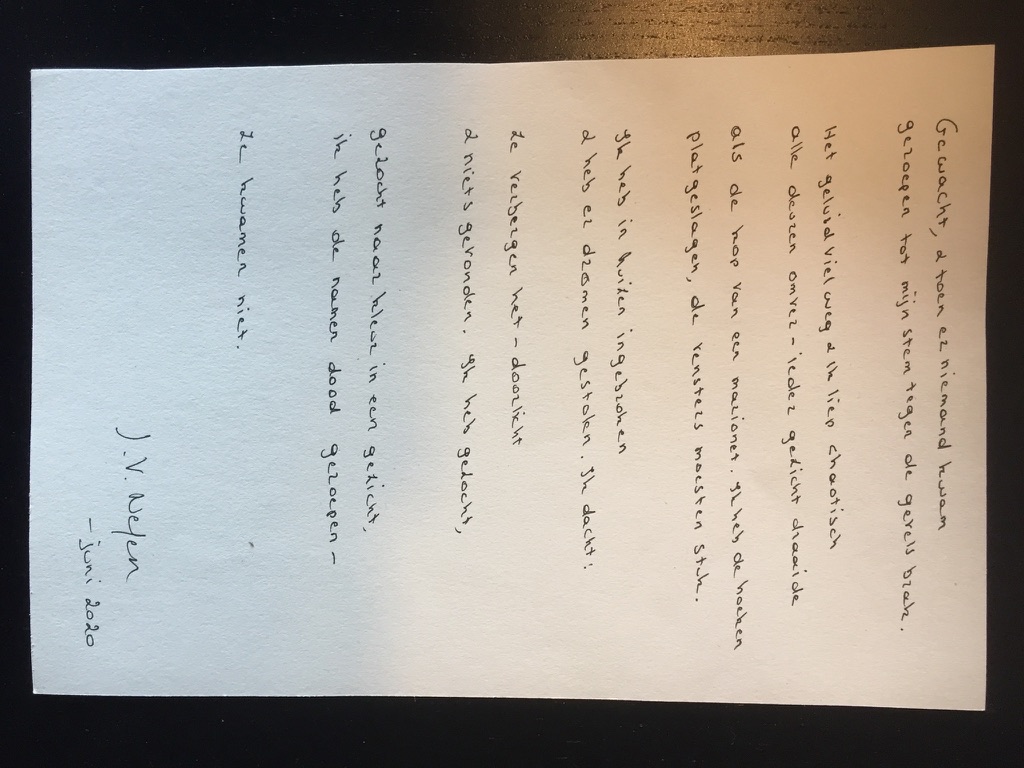 Gewacht, & toen er niemand kwam
geroepen tot mijn stem tegen de gevels brak.
Het geluid viel weg & ik liep chaotisch
alle deuren omver - ieder gezicht draaide
als de kop van een marionet. Ik heb de hoeken
platgeslagen, de vensters moesten stuk.
Ik heb in huizen ingebroken
& heb er dromen gestolen. Ik dacht:
ze verbergen het - doorlicht
& niets gevonden. Ik heb gedocht,
gezocht naar kleur in een gezicht,
ik heb de namen dood geroepen -
ze kwamen niet.
J.V. Neylen
- juni 2020